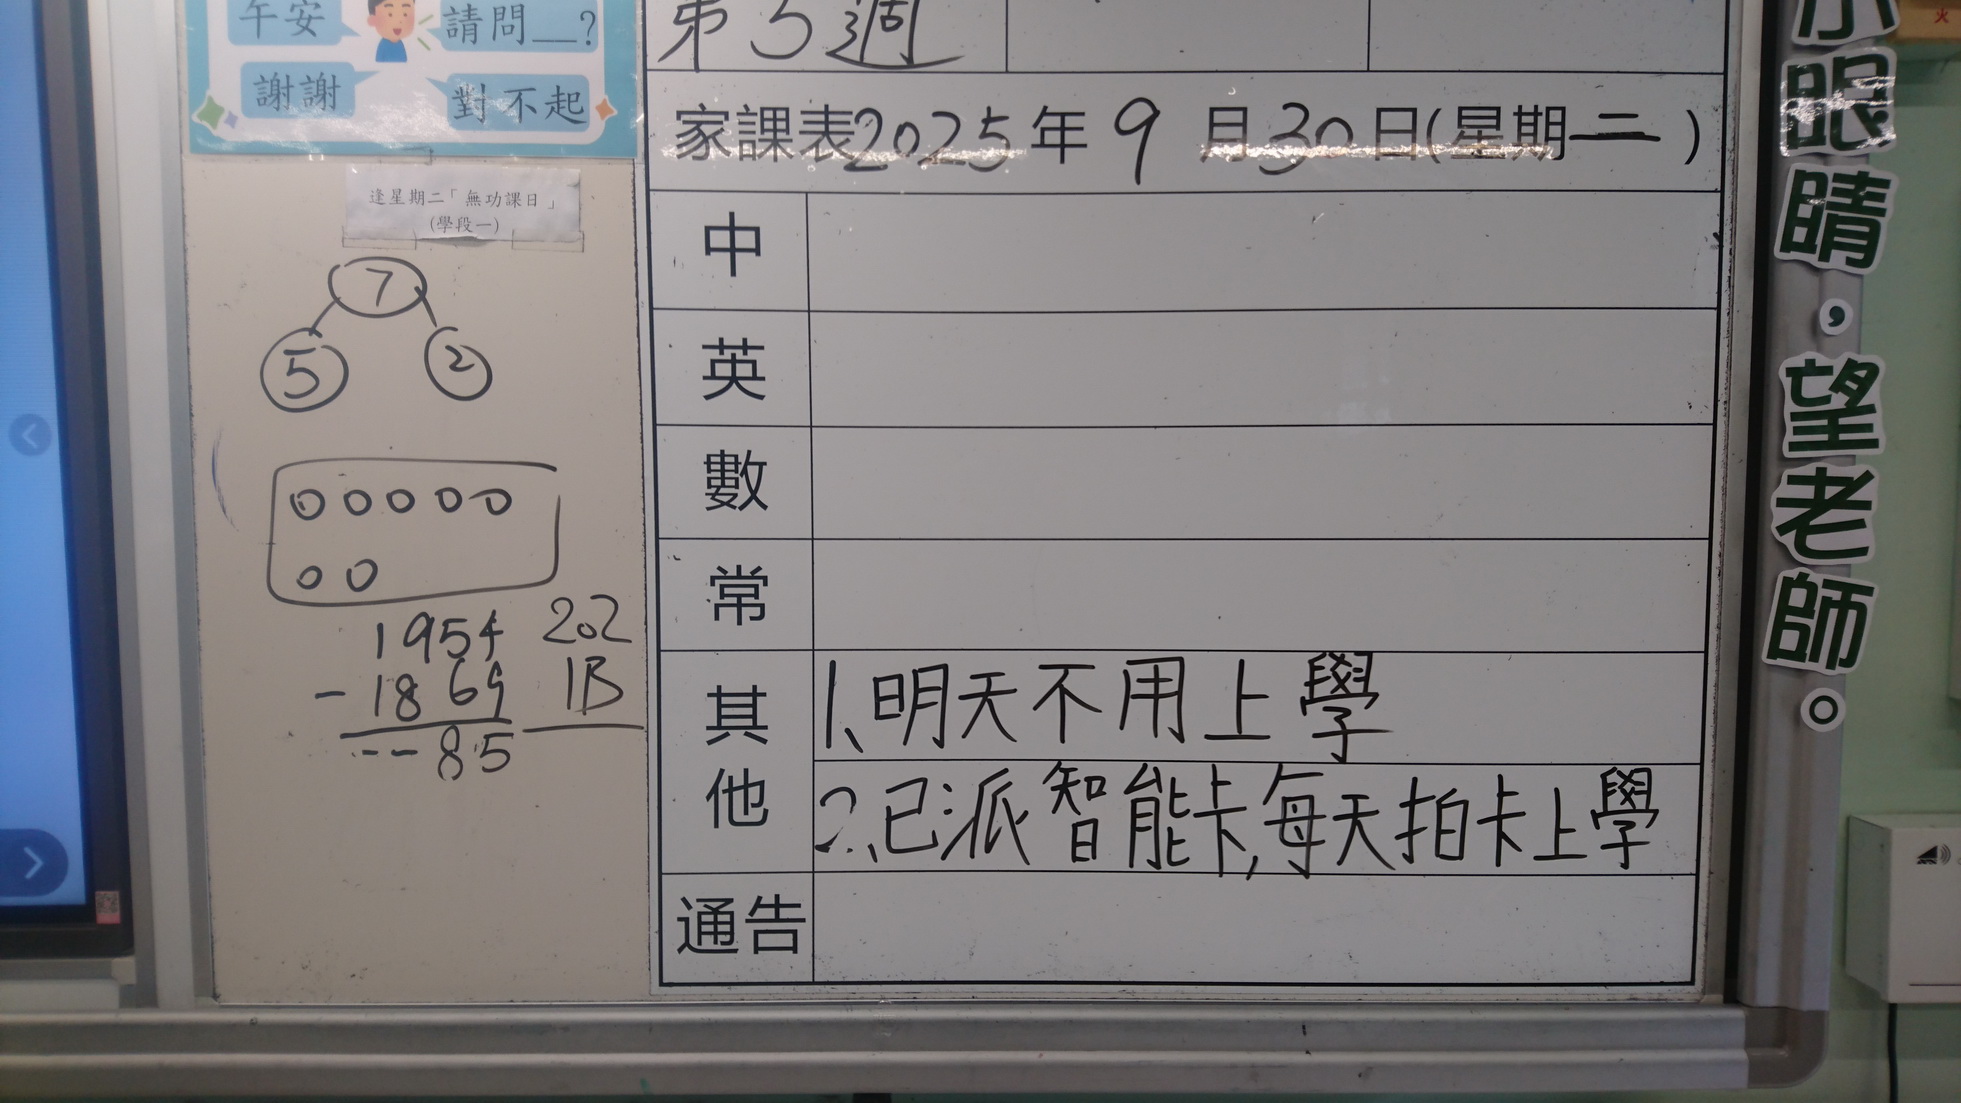 午安
請問__?
謝謝
對不起
逢星期二「無功課日」
(學段一)
7
5 2
1954
- 1869
--85
202
1B
第5週
家課表2025年9月30日(星期二)
中
英
數
常
其他
1、明天不用上學
2、已派智能卡,每天拍卡上學
通告
小眼睛，望老師。
火